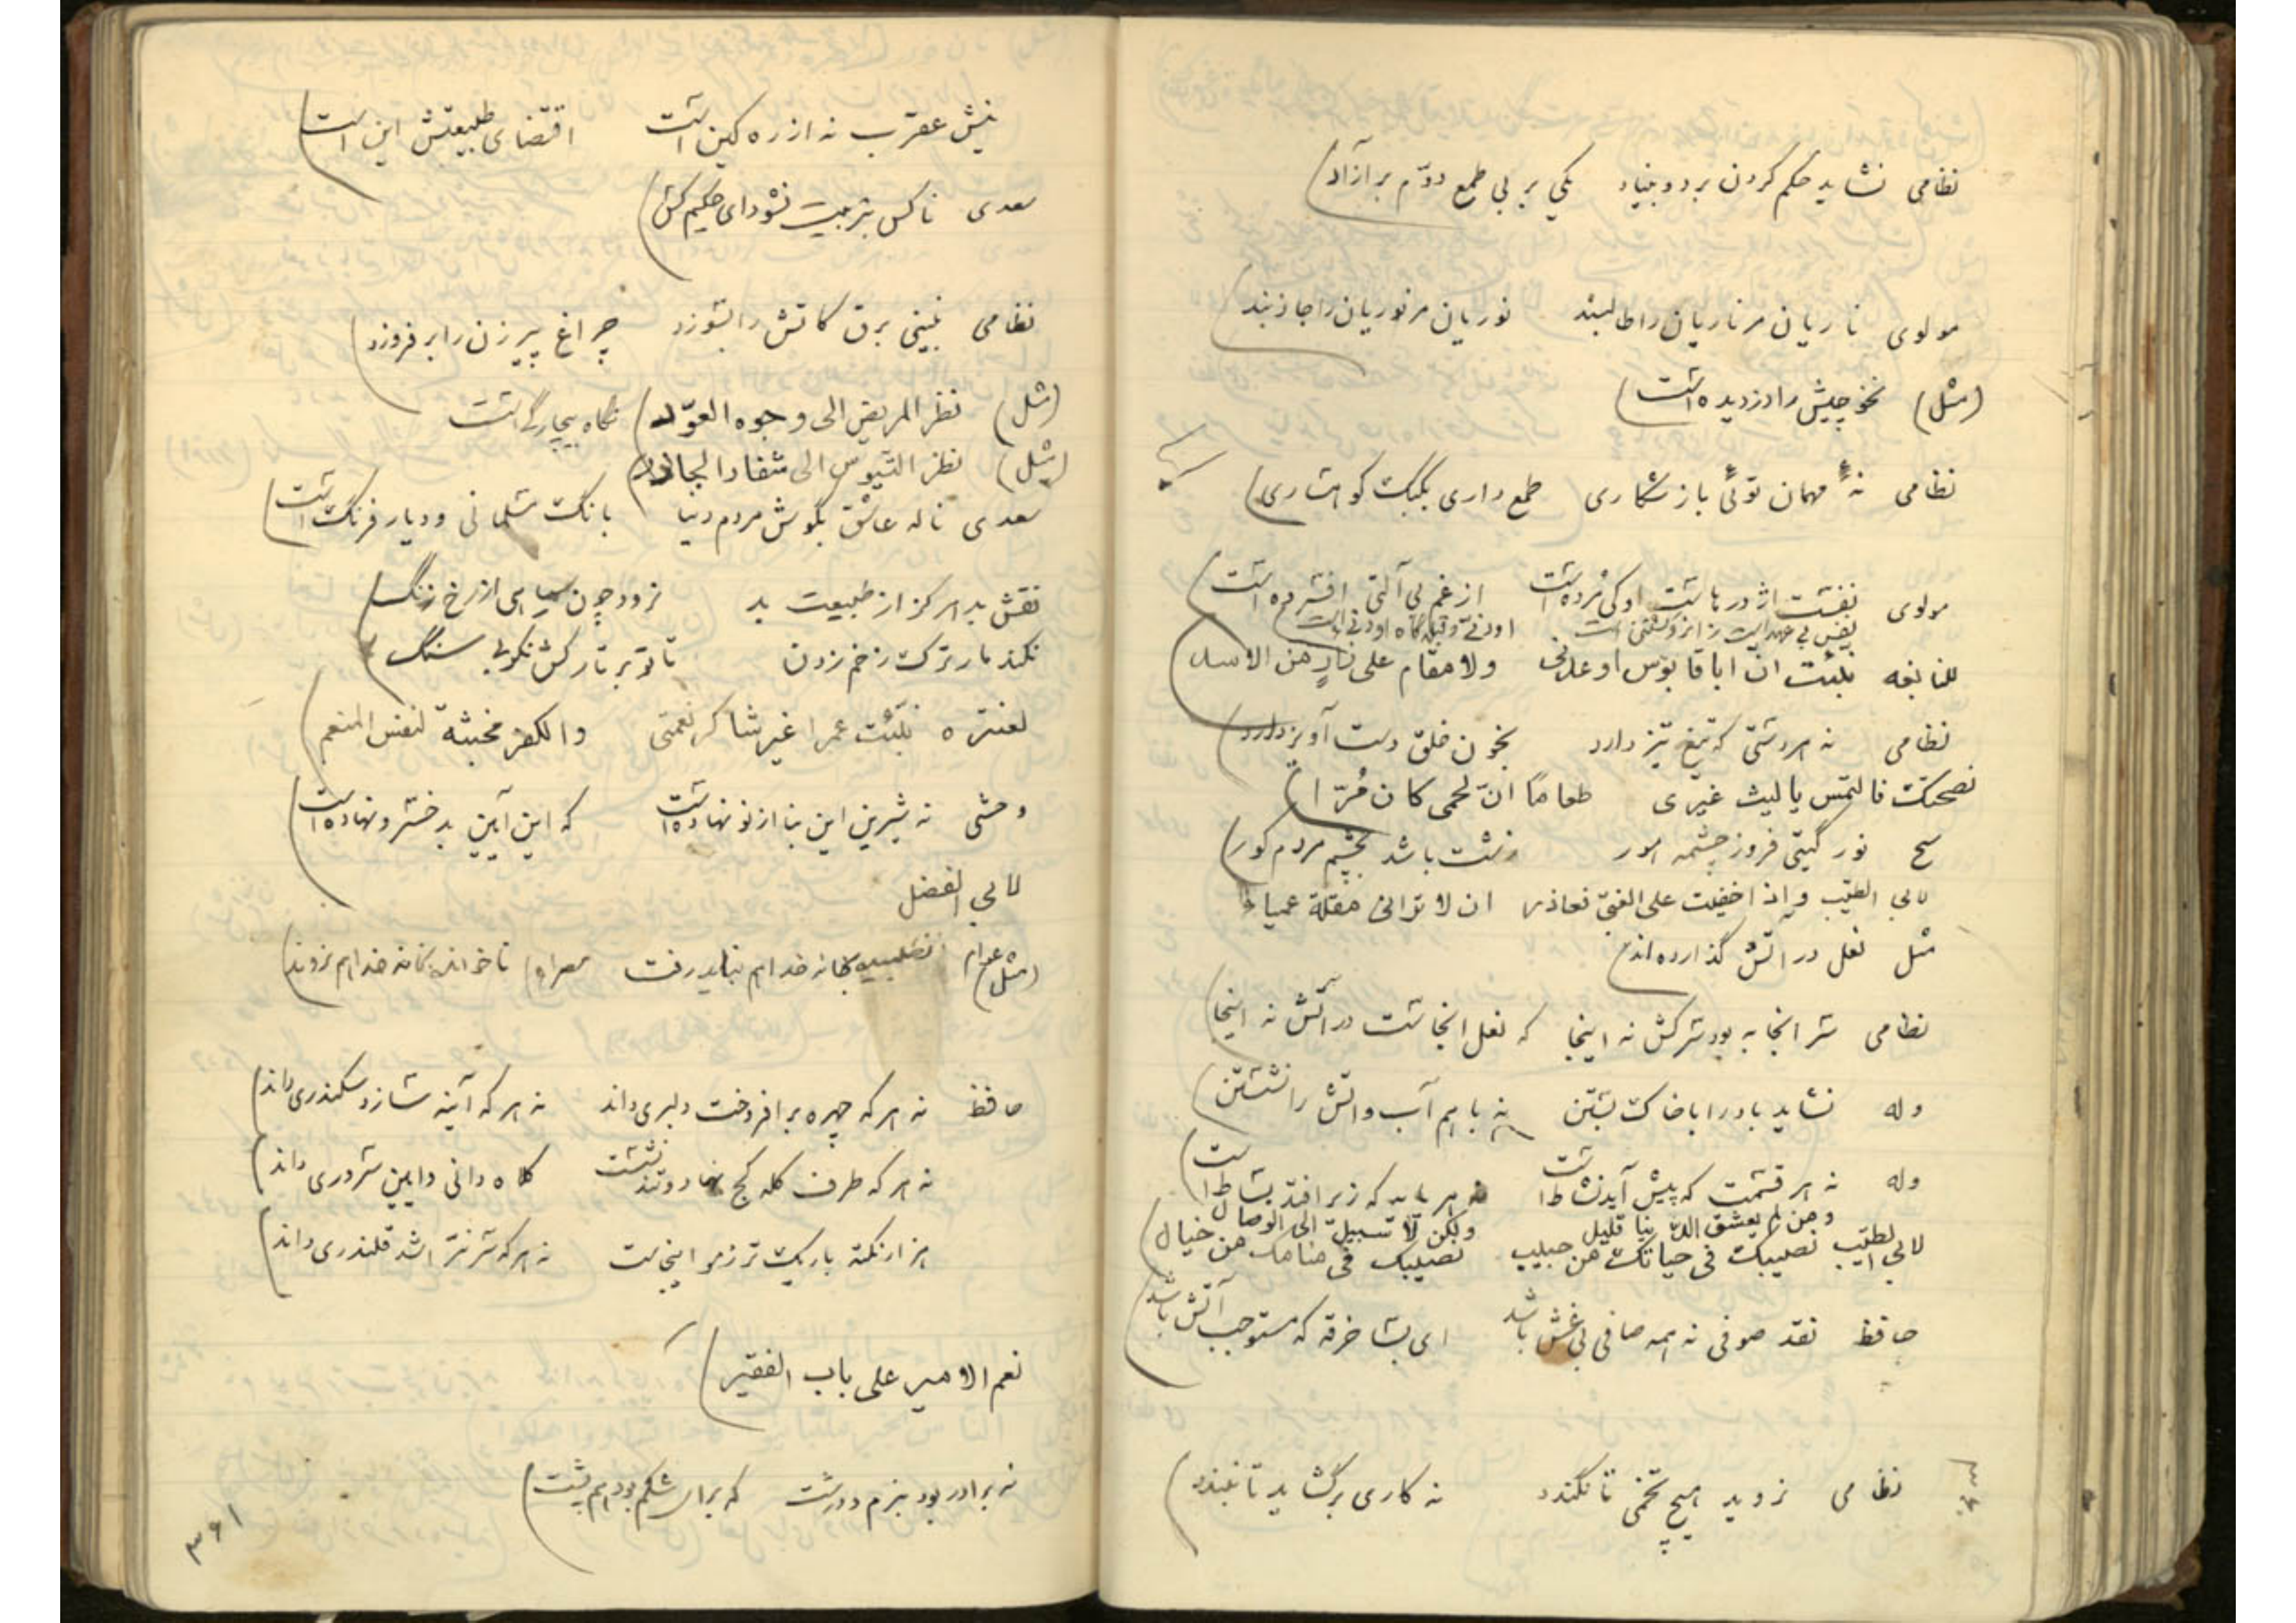 نظامی نشاید حکم کردن بر دو بنیاد یکی بر بی طمع دوّم بر آزاد
مولوی ناریان مر ناریان را طالبند نوریان مر نوریان را جاذبند
(مثل) نخوچیش را دزدیده است
نظامی نهٔ مهمان توئی باز شکاری طمع داری بکبک کوهساری
مولوی نفست اژدرهاست او کی مرده است از غم بی آلتی افسرده است
نفس بی عهد است زانرو کشتنی است او دنی و قبله گاه او دنی است
للنابغه نبئت انّ ابا قابوس اوعدنی ولا مقام علی زأر من الاسد
نظامی نه هر دستی که تیغ تیز دارد بخون خلق دست آویز دارد
نصحتک فالتمس یا لیث غیری طعاماً انّ لحمی کان مُرّا
نور گیتی فروز چشمه هور زشت باشد بچشم مردم کور
لابی الطیّب و اذا خفیت علی الغبیّ فعاذر ان لا ترانی مقلة عمیاء
مثل نعل در آتش گذارده اند
نظامی سر انجا به بود سرکش نه اینجا که نعل انجاست در آتش نه اینجا
وله نشاید باد را با خاک بستن نه با هم آب و اتش را نشستن
وله نه هر قسمت که پیش آید نشاط است نه هر پایه که زیر افتد بساط است
ومن لم یعشق الدنیا قلیل ولکن لا سبیل الی الوصال
لابی الطیّب نصیبک فی حیاتک من حبیب نصیبک فی منامک من خیال
حافظ نقد صوفی نه همه صافی بی غش باشد ای بسا خرقه که مستوجب آتش باشد
نظامی نروید هیچ تخمی تا نگندد نه کاری برگشاید تا نبندد
نیش عقرب نه از ره کین است اقتضای طبیعتش این است
سعدی ناکس بتربیت نشود ای حکیم کس
نظامی نبینی برق کاتش را بسوزد چراغ پیرزن را برفروزد
(مثل) نظر المریض الی وجوه العوّد نگاه بیچارگی است
(مثل) نظر التیوس الی شفار الجازر
سعدی ناله عاشق بگوش مردم دنیا بانگ مسلمانی و دیار فرنگ است
نقش بد هرگز از طبیعت بد نرود چون سیاهی از رخ زنگ
نکند مار ترک زخم زدن تا تو بر تارکش نکوبی سنگ
لعنتره نبّئت عمرا غیر شاکر نعمتی والکفر مخبثة لنفس المنعم
وحشی نه شیرین این بنا از نو نهاده است که این آیین بد خسرو نهاده است
لابی الفضل
(مثل) عوام نطلبیده بخانه خدا هم نباید رفت ناخوانده بخانه خدا هم نروند
حافظ نه هر که چهره برافروخت دلبری داند نه هر که آینه سازد سکندری داند
نه هر که طرف کله کج نهاد و تند نشست کلاه داری و ایین سروری داند
هزار نکته باریک تر ز مو اینجاست نه هر که سر بتراشد قلندری داند
نعم الامیر علی باب الفقیر
نه برادر بود بنرم و درشت که برای شکم بود هم پشت
۳۶۱